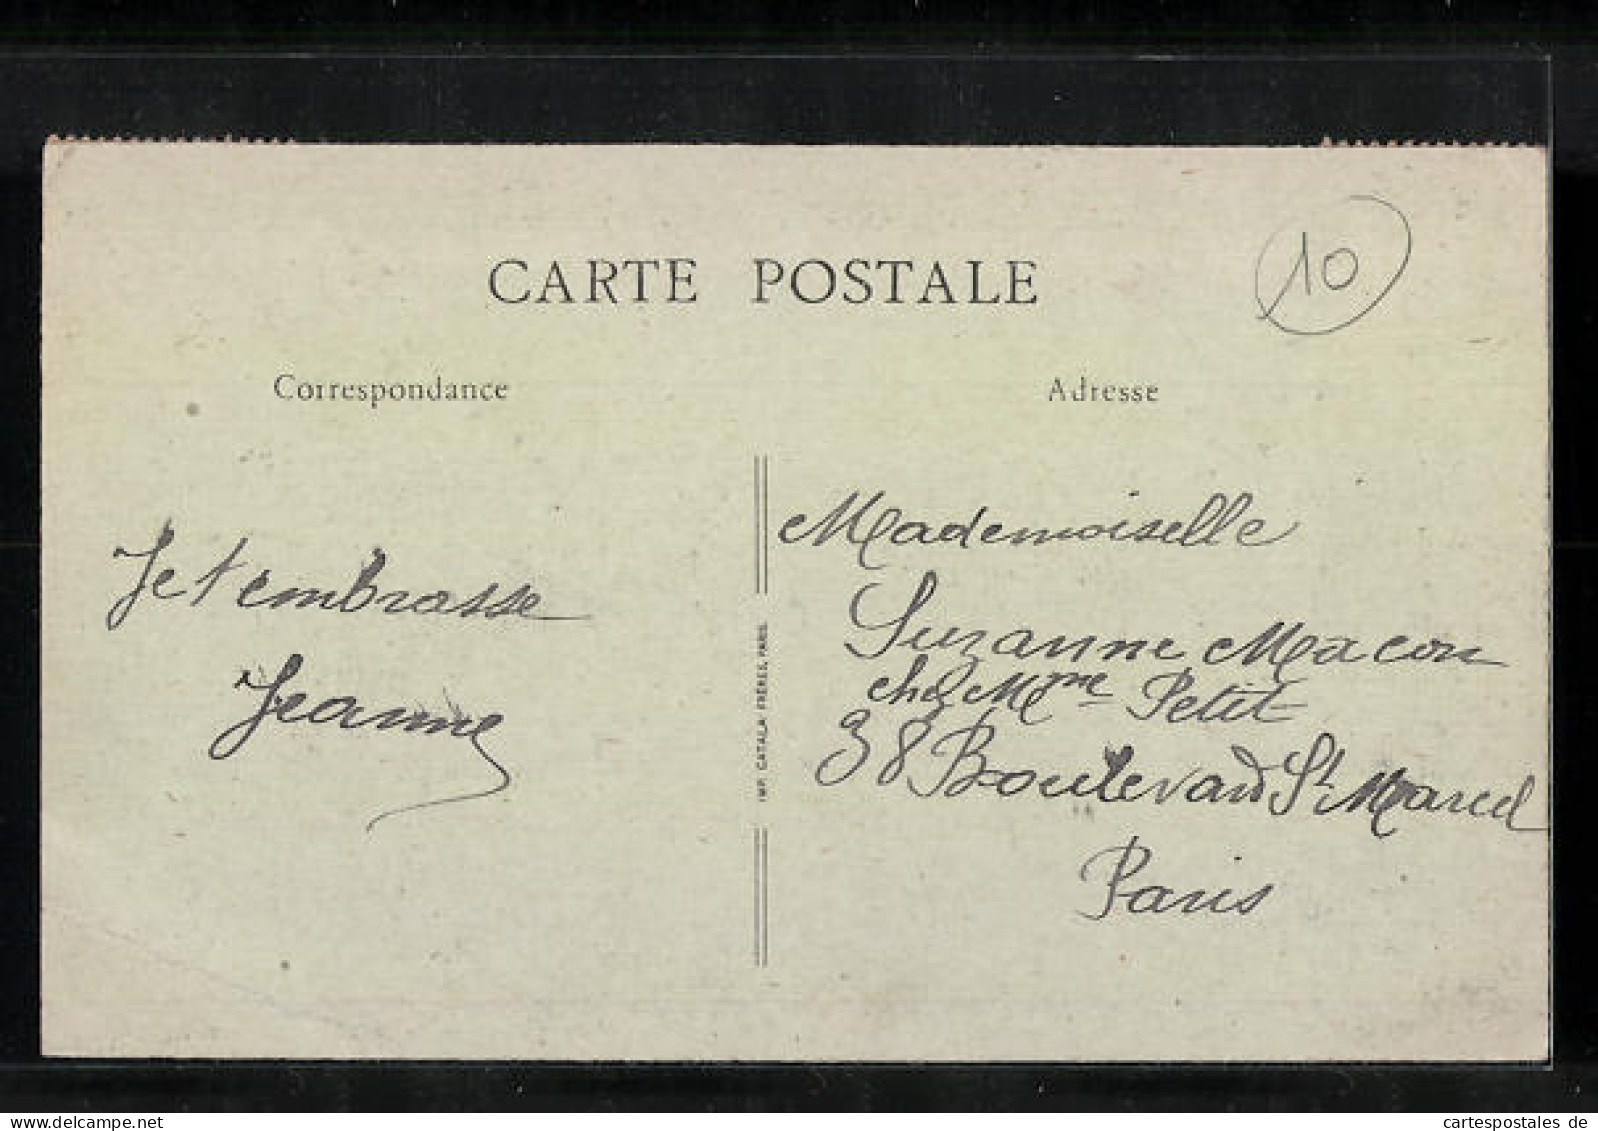 CARTE POSTALE
10
Correspondance
Adresse
Je t'embrasse
Jeanne
IMP. CATALA FRÈRES, PARIS.
Mademoiselle
Suzanne Macon
chez Mme Petit
38 Boulevard St Marcel
Paris
delcampe.net
cartespostales de